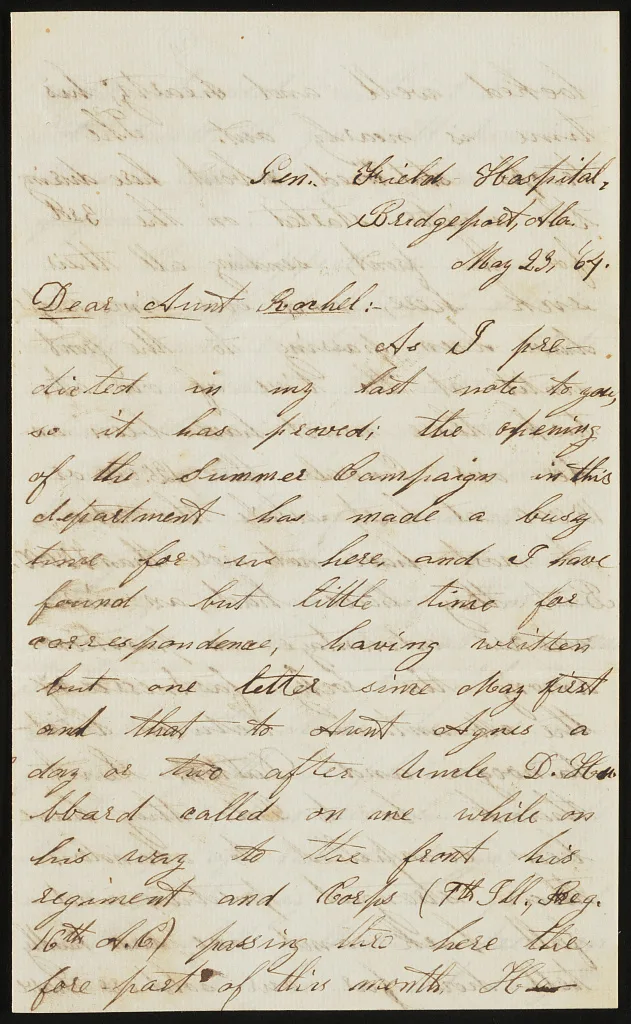 Gen. Field Hospital,
Bridgeport, Ala.
May 23, '64.
Dear Aunt Rachel:-
As I pre-
dicted in my last note to you,
so it has proved; the opening
of the Summer Campaign in this
department has made a busy
time for us here, and I have
found but little time for
correspondence, having written
but one letter since May first
and that to Aunt Agnes a
day or two after Uncle D. Hu
bbard called on me while on
his way to the front his
regiment and Corps (7th Ill., Reg.
16th A.C.) passing thro here the
fore-part of this month. He